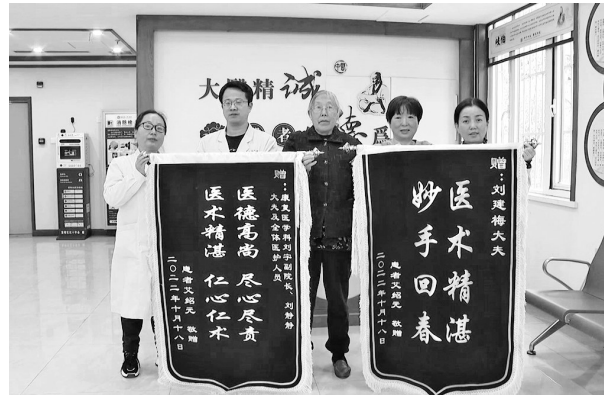 大醫精誠
中醫
德
者
贈：康复医学科刘宇副院长、刘静静
大夫及全体医护人员
医德高尚 尽心尽责
医术精湛 仁心仁术
患者艾绍无 敬贈
二〇二二年十月十八日
贈：刘建梅大夫
医术精湛
妙手回春
患者艾绍无 敬贈
二〇二二年十月十八日